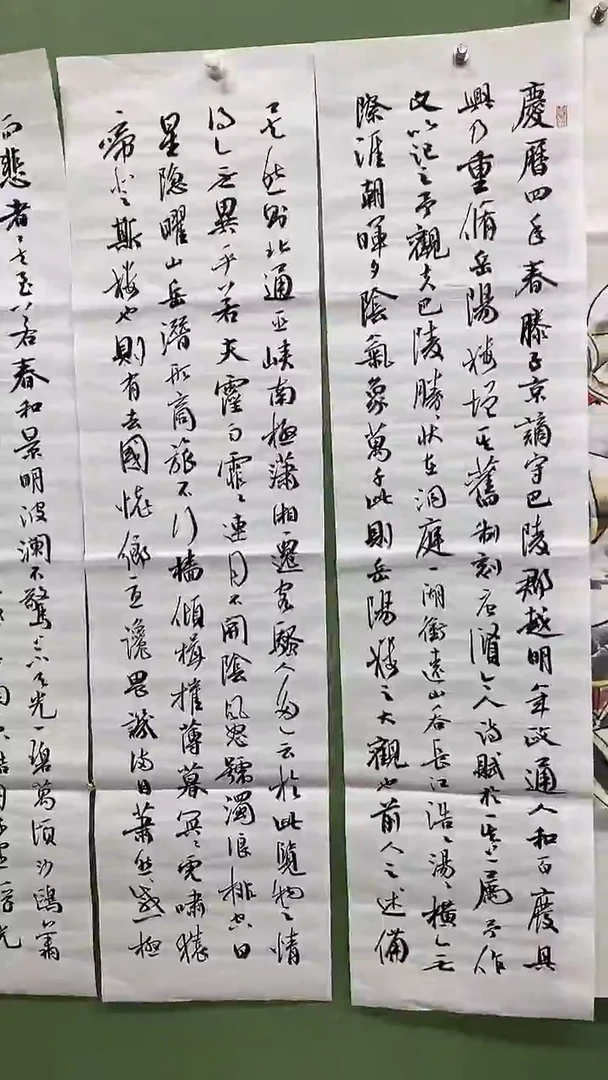 慶曆四年春滕子京謫守巴陵郡越明年政通人和百廢具
興乃重脩岳陽樓增其舊制刻唐賢今人詩賦於其上屬予作
文以記之予觀夫巴陵勝狀在洞庭一湖銜遠山吞長江浩〻湯〻橫無
際涯朝暉夕陰氣象萬千此則岳陽樓之大觀也前人之述備
矣然則北通巫峽南極瀟湘遷客騷人多會於此覽物之情
得無異乎若夫霪雨霏〻連月不開陰風怒號濁浪排空日
星隱曜山岳潛形商旅不行檣傾楫摧薄暮冥〻虎嘯猿
啼登斯樓也則有去國懷鄉憂讒畏譏滿目蕭然感極
而悲者矣至若春和景明波瀾不驚上下天光一碧萬頃沙鷗